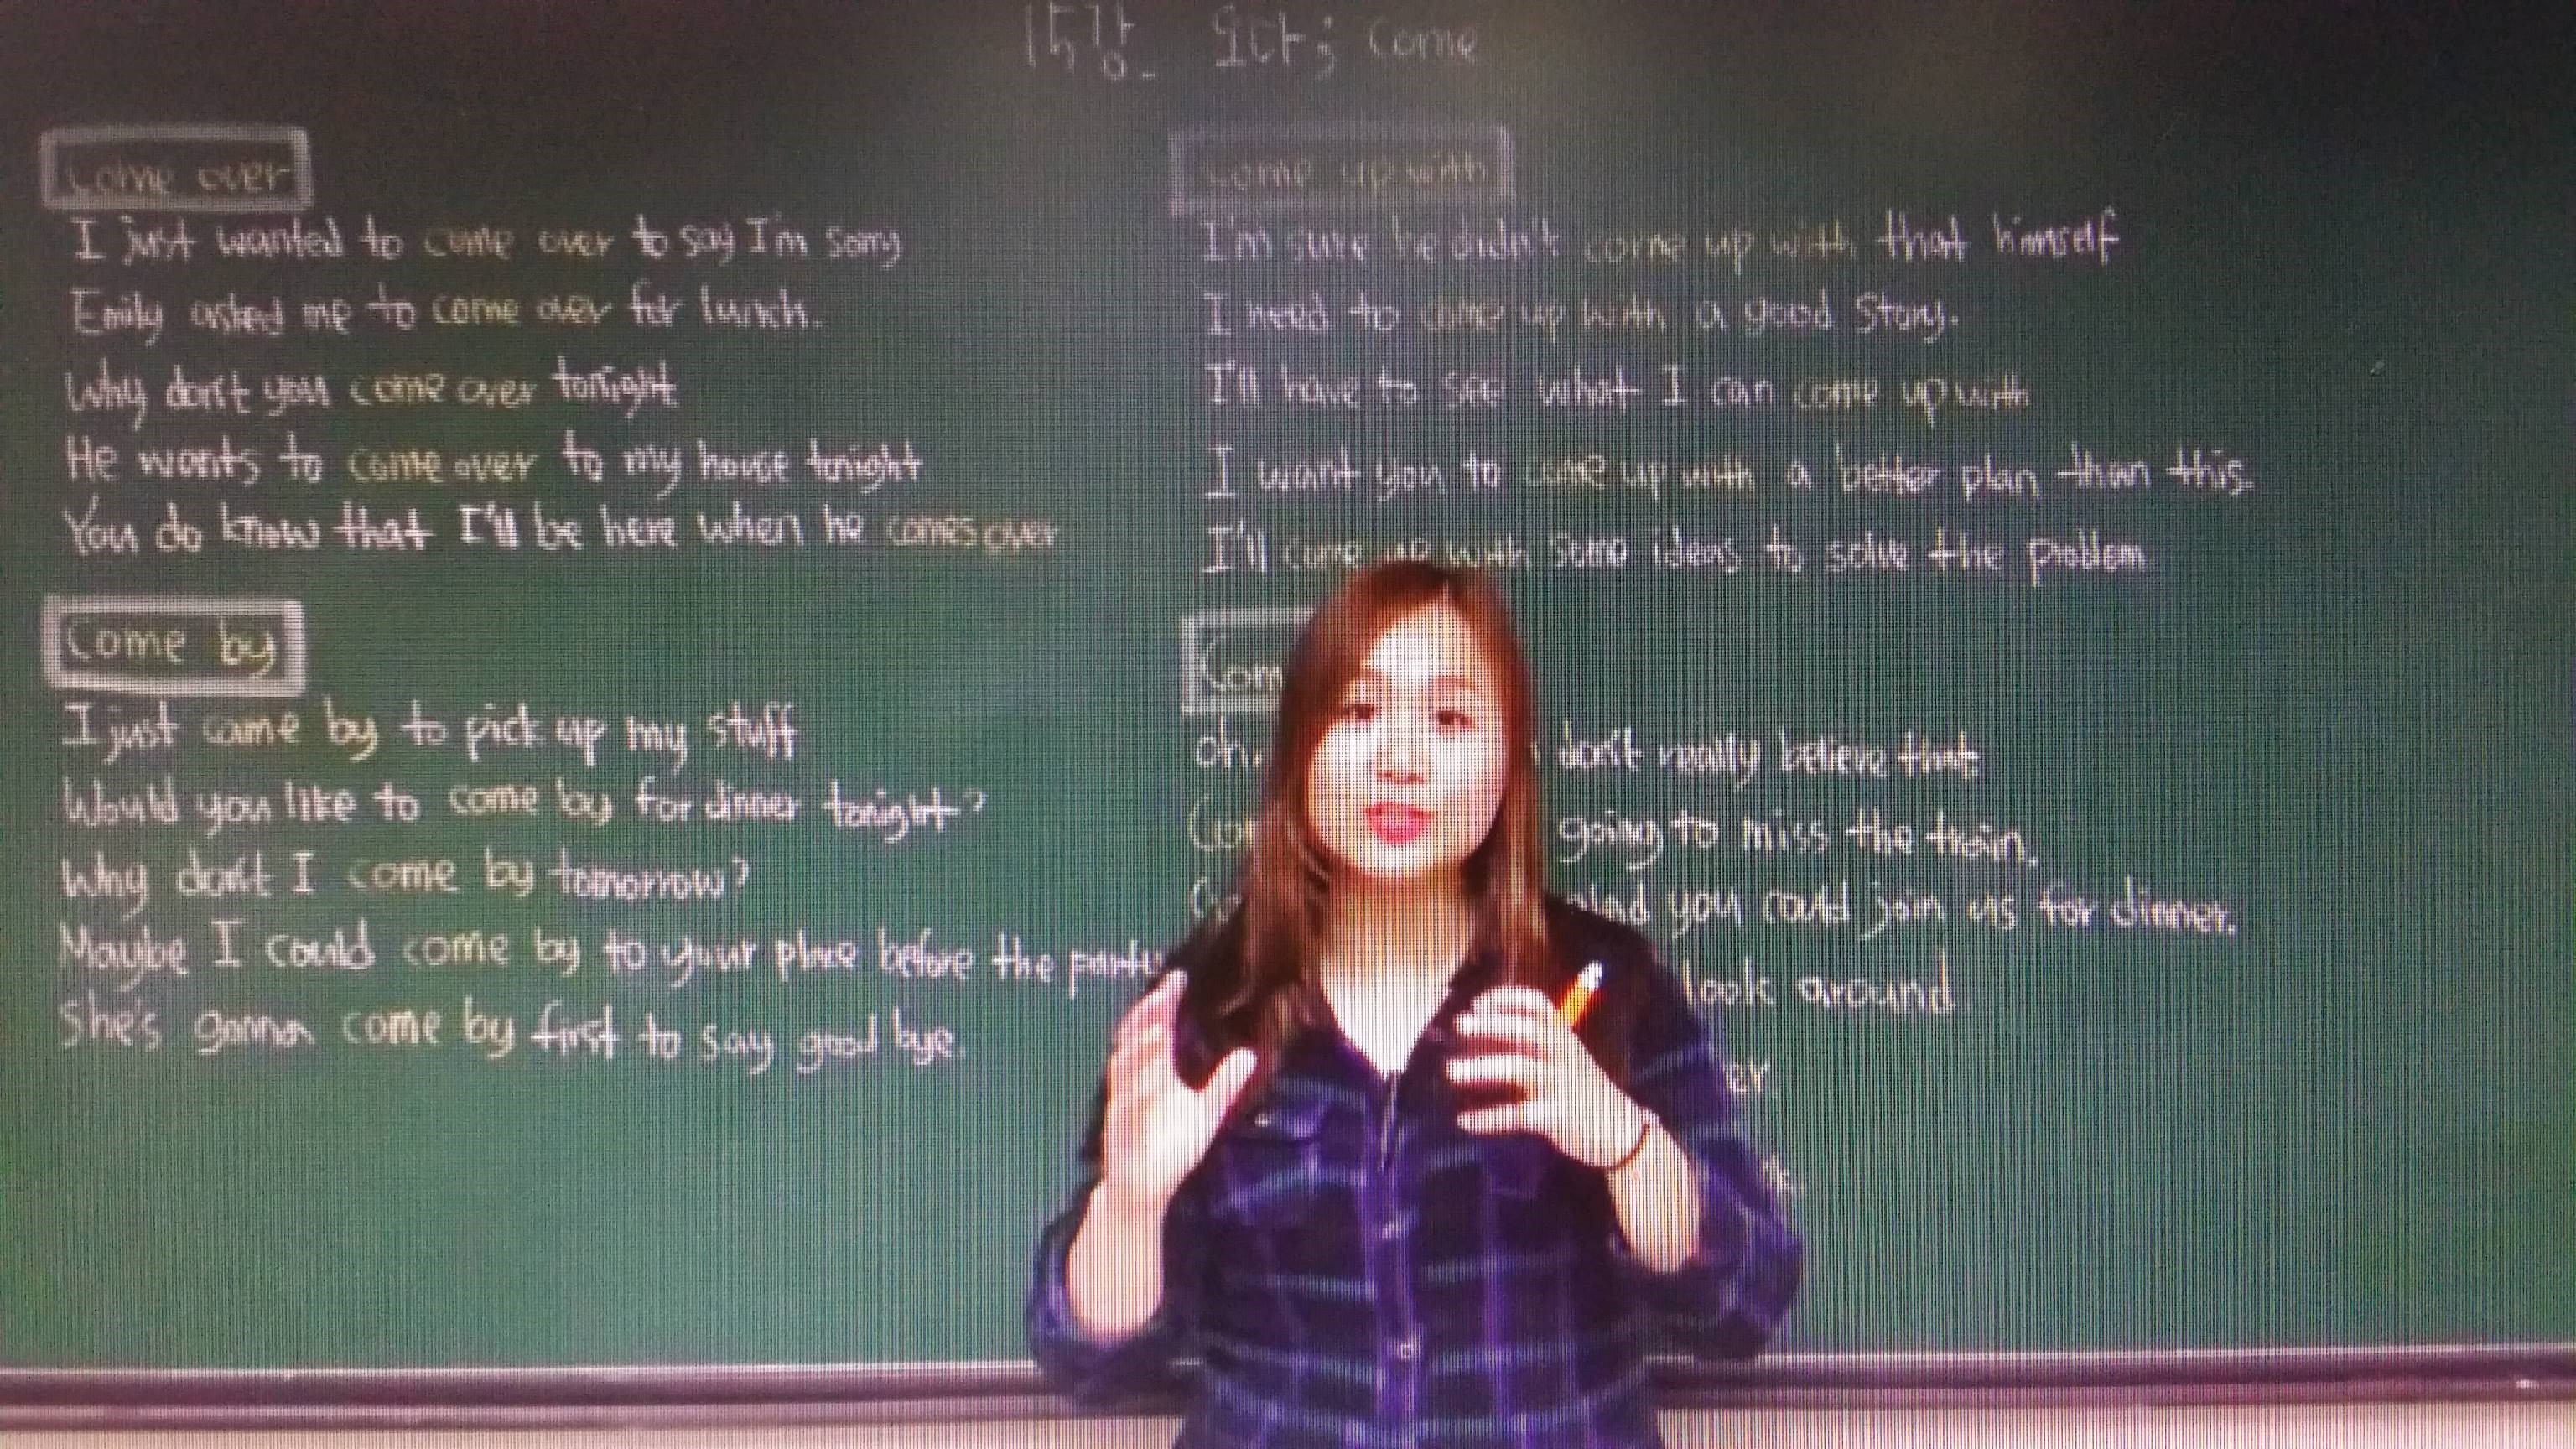 15강. 오다; come
Come over
I just wanted to come over to say I'm sorry
Emily asked me to come over for lunch.
Why don't you come over tonight
He wants to come over to my house tonight
You do know that I'll be here when he comes over
Come by
I just came by to pick up my stuff
Would you like to come by for dinner tonight?
Why don't I come by tomorrow?
Maybe I could come by to your place before the party
She's gonna come by first to say good bye.
come up with
I'm sure he didn't come up with that himself
I need to come up with a good story.
I'll have to see what I can come up with
I want you to come up with a better plan than this.
I'll come up with some ideas to solve the problem
Com
oh, don't really believe that.
going to miss the train.
glad you could join us for dinner.
look around